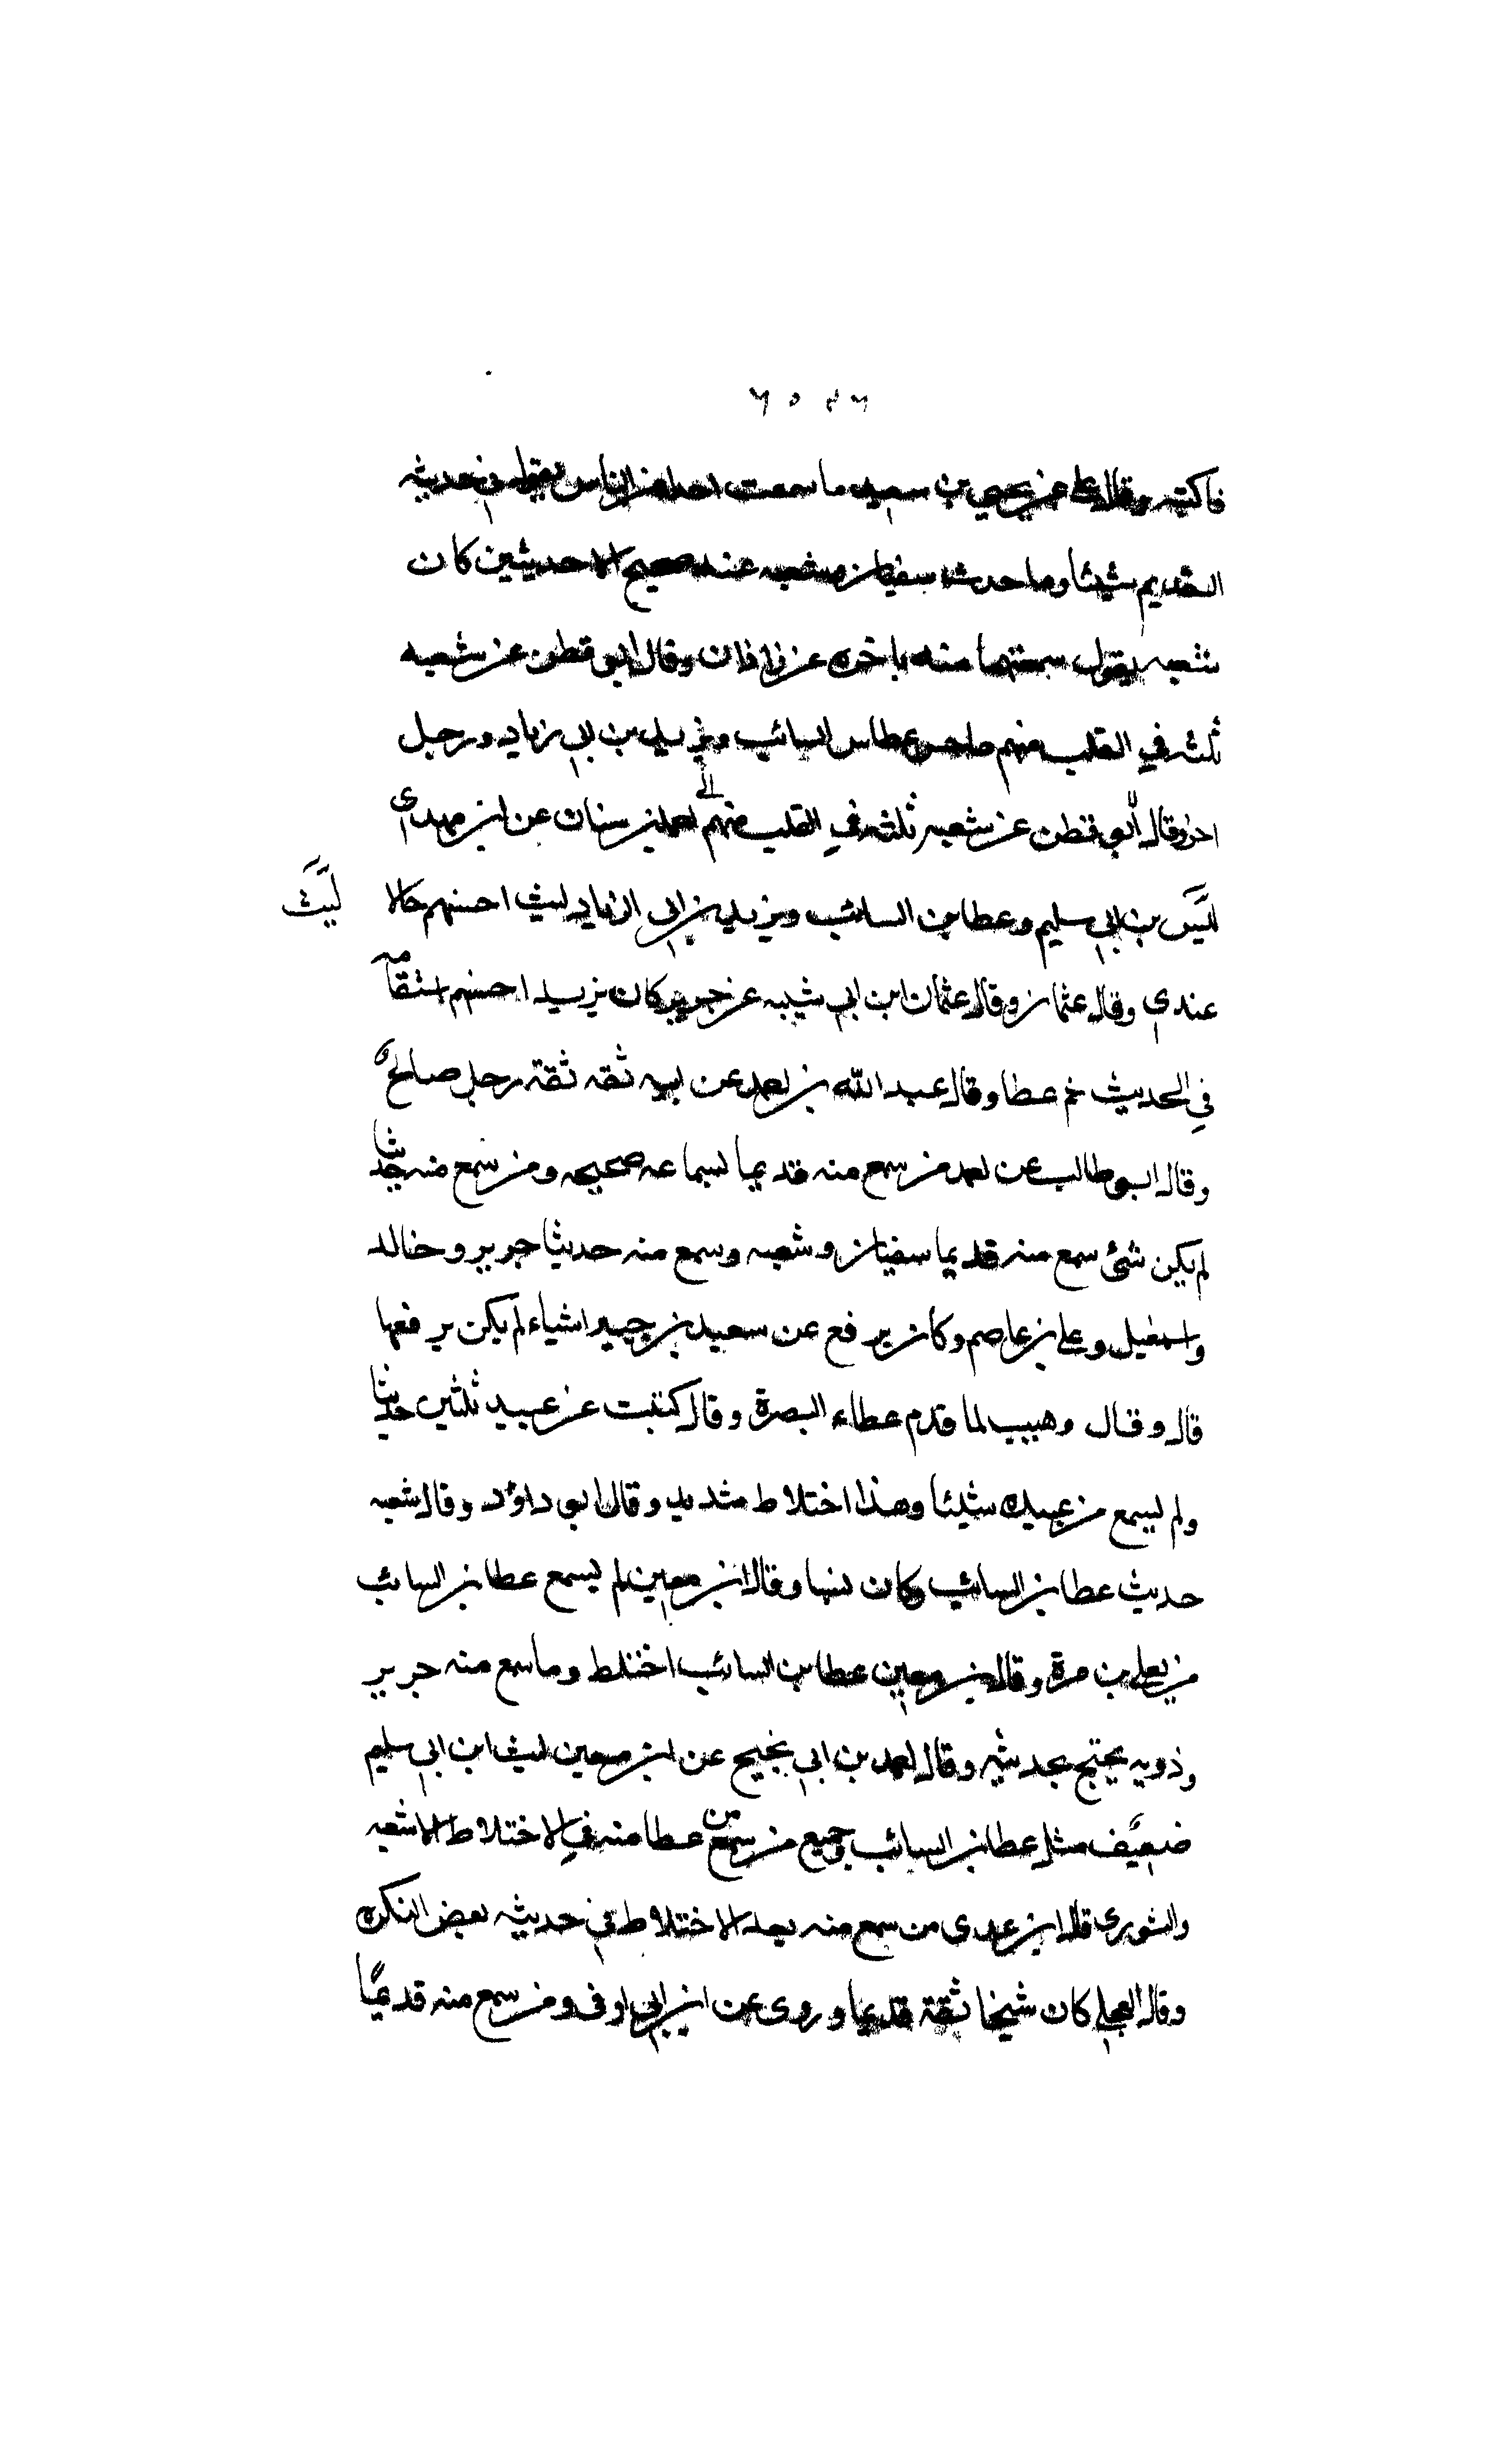 فاكتبه وقال علي عن يحيى بن سعيد ما سمعت احدا من الناس يقول في حديثه
القديم شيئا وما حدث سفيان وشعبه عنه صحيح الا حديثين كان
شعبه يقول سمعتهما منه باخره عن زاذان وقال ابو قطن عن شعبه
ثلثه في القلب منهم هاجس عطا بن السائب ويزيد بن ابي زياد ورجل
اخر وقال ابو قطن عن شعبه ثلثه في القلب منهم احمد بن سنان عن ابن مهدي
ليس بن ابي سليم وعطا بن السائب ويزيد بن ابي الزياد ليث احسنهم حالا
ليث
عندي وقال عثمان وقال عثمان ابن ابي شيبه عن جرير كان يزيد احسنهم استقامه
في الحديث ثم عطا وقال عبد الله بن احمد عن ابيه ثقه ثقة رجل صالح
وقال ابو طالب عن احمد من سمع منه قديما لسماعه صحيحه ومن سمع منه حديثا
لم يكن شئ سمع منه قديما سفيان وشعبه وسمع منه حديثا جرير وخالد
واسمعيل وعلي بن عاصم وكان يرفع عن سعيد بن جبير اشياء لم يكن يرفعها
قال وقال وهيب لما قدم عطاء البصرة وقال كتبت عن عبيد ثلثين حديثا
ولم يسمع من عبيده شيئا وهذا اختلاط شديد وقال ابو داؤد وقال شعبه
حديث عطا بن السائب وكان نسيا وقال ابن معين لم يسمع عطا بن السائب
من يعلى بن مرة وقال ابن معين عطا بن السائب اختلط وما سمع منه جرير
وذويه يحتج بحديثه وقال احمد بن ابي نجيح عن ابن معين ليث ابن ابي سليم
ضعيف مثل عطا بن السائب وجميع من سمع من عطا منه في الاختلاط الا شعبه
والثوري قال ابن عدى من سمع منه بعد الاختلاط في حديثه بعض النكره
وقال العجلي كان شيخا ثقة قديما وروى عن ابن ابي اوفى ومن سمع منه قديمًا